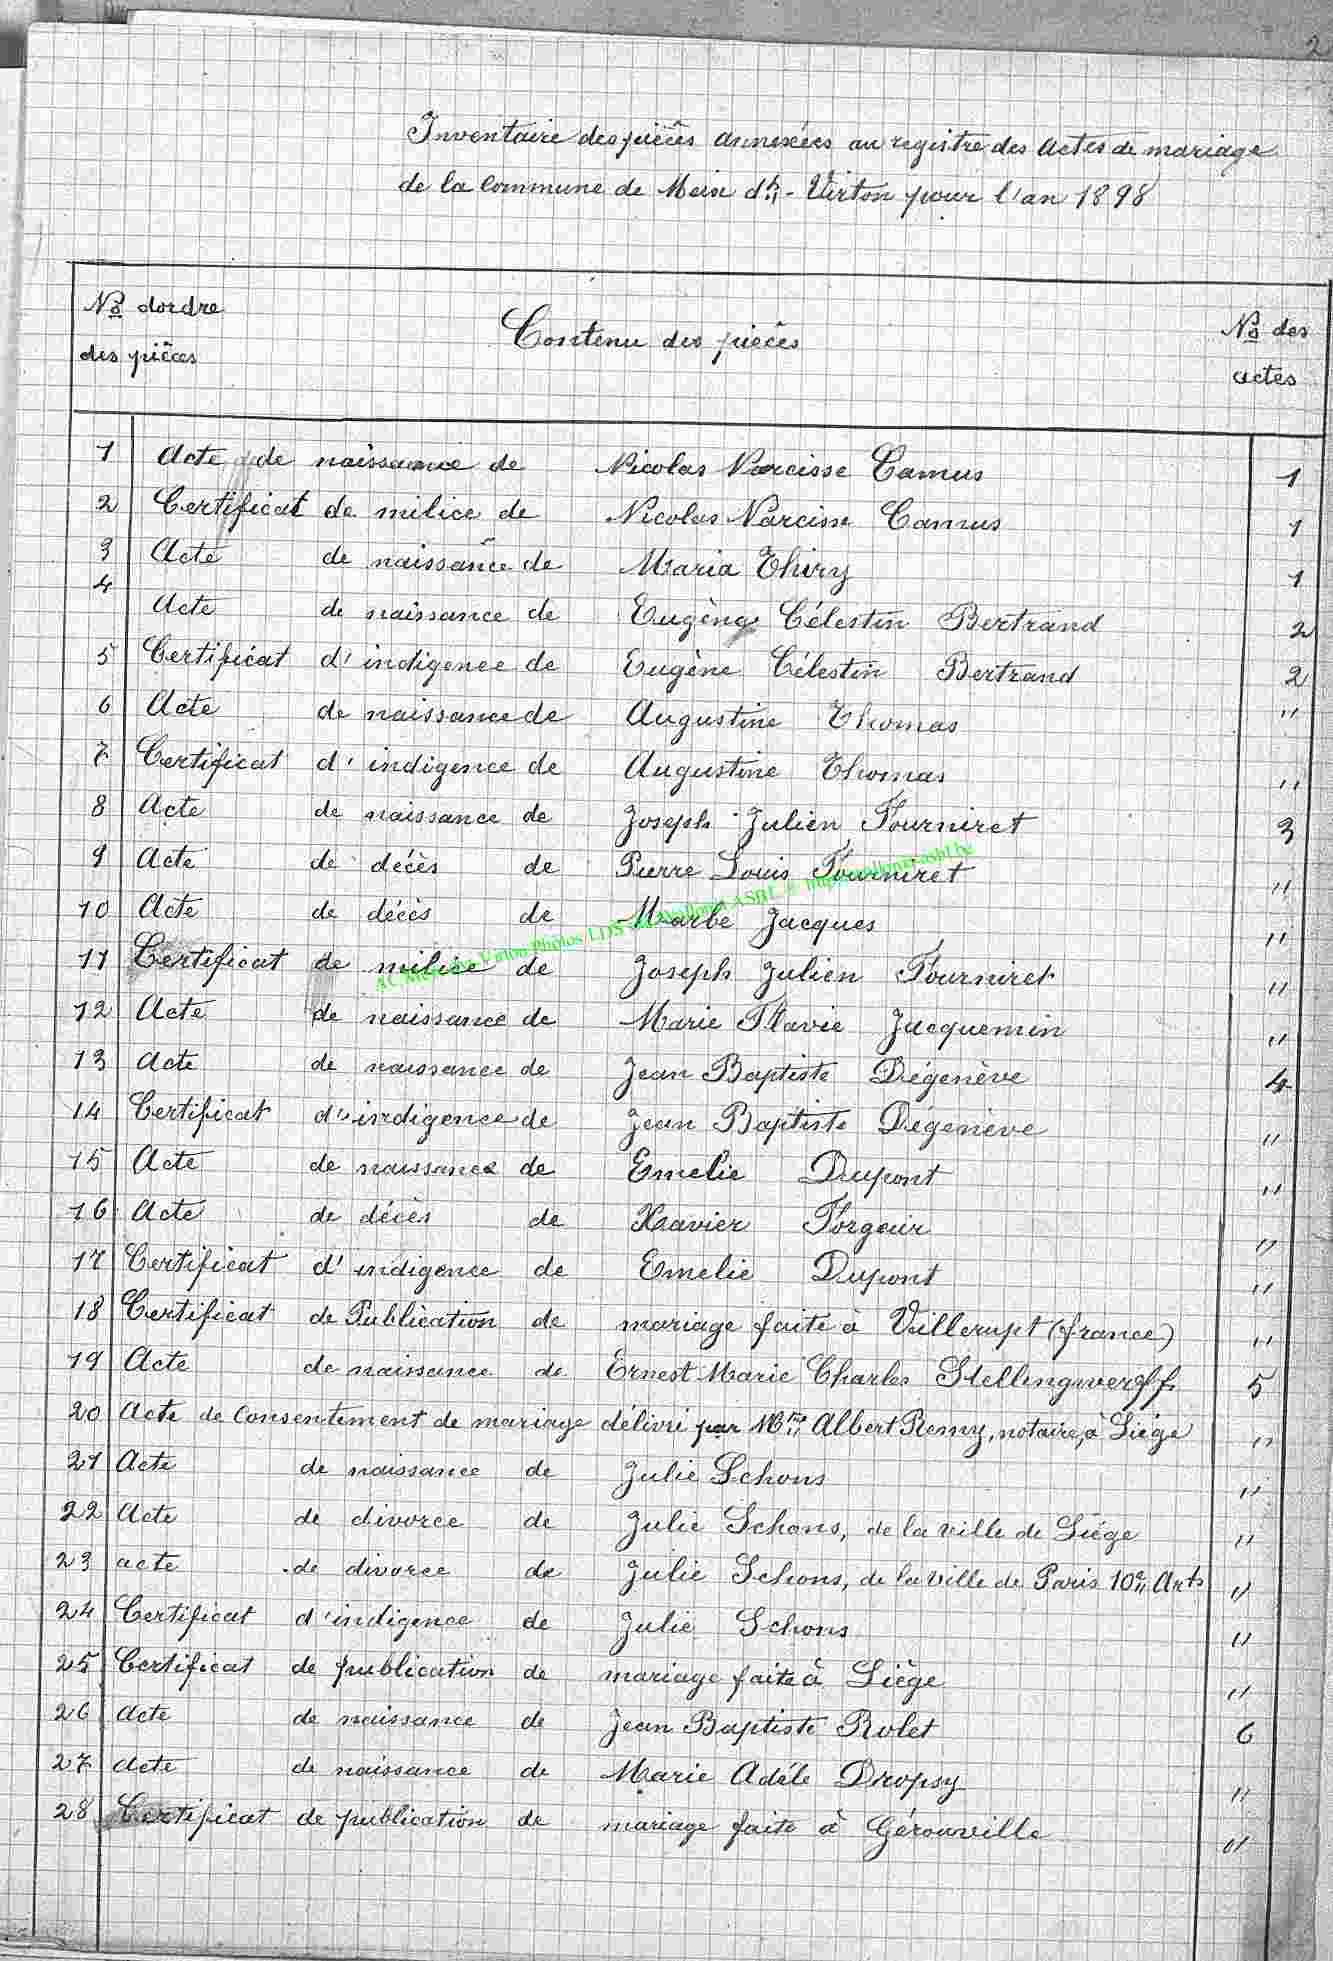 2
Inventaire des pièces annexées au registre des actes de mariage
de la commune de Meix dt - Virton pour l'an 1898
No dordre des pièces Contenu des pièces No des actes
1 Acte de naissance de Nicolas Narcisse Camus 1
2 Certificat de milice de Nicolas Narcisse Camus 1
3 Acte de naissance de Maria Thiry 1
4 Acte de naissance de Eugène Célestin Bertrand 2
5 Certificat d'indigence de Eugène Célestin Bertrand 2
6 Acte de naissance de Augustine Thomas "
7 Certificat d'indigence de Augustine Thomas "
8 Acte de naissance de Joseph Julien Fourniret 3
9 Acte de décès de Pierre Louis Fourniret "
10 Acte de décès de Marbe Jacques "
11 Certificat de milice de Joseph Julien Fourniret "
12 Acte de naissance de Marie Flavie Jacquemin "
13 Acte de naissance de Jean Baptiste Dégenève 4
14 Certificat d'indigence de Jean Baptiste Dégenève "
15 Acte de naissance de Emelie Dupont "
16 Acte de décès de Xavier Forgeur "
17 Certificat d'indigence de Emelie Dupont "
18 Certificat de Publication de mariage faite à Villerupt (france) "
19 Acte de naissance de Ernest Marie Charles Stellingwerff 5
20 Acte de Consentement de mariage délivré par Me Albert Remy, notaire, à Liége "
21 Acte de naissance de Julie Schons "
22 Acte de divorce de Julie Schons, de la ville de Liége "
23 acte de divorce de Julie Schons, de la ville de Paris 10e Arts "
24 Certificat d'indigence de Julie Schons "
25 Certificat de publication de mariage faite à Liège "
26 Acte de naissance de Jean Baptiste Rolet 6
27 Acte de naissance de Marie Adéle Dropsy "
28 Certificat de publication de mariage faite à Gérouville "